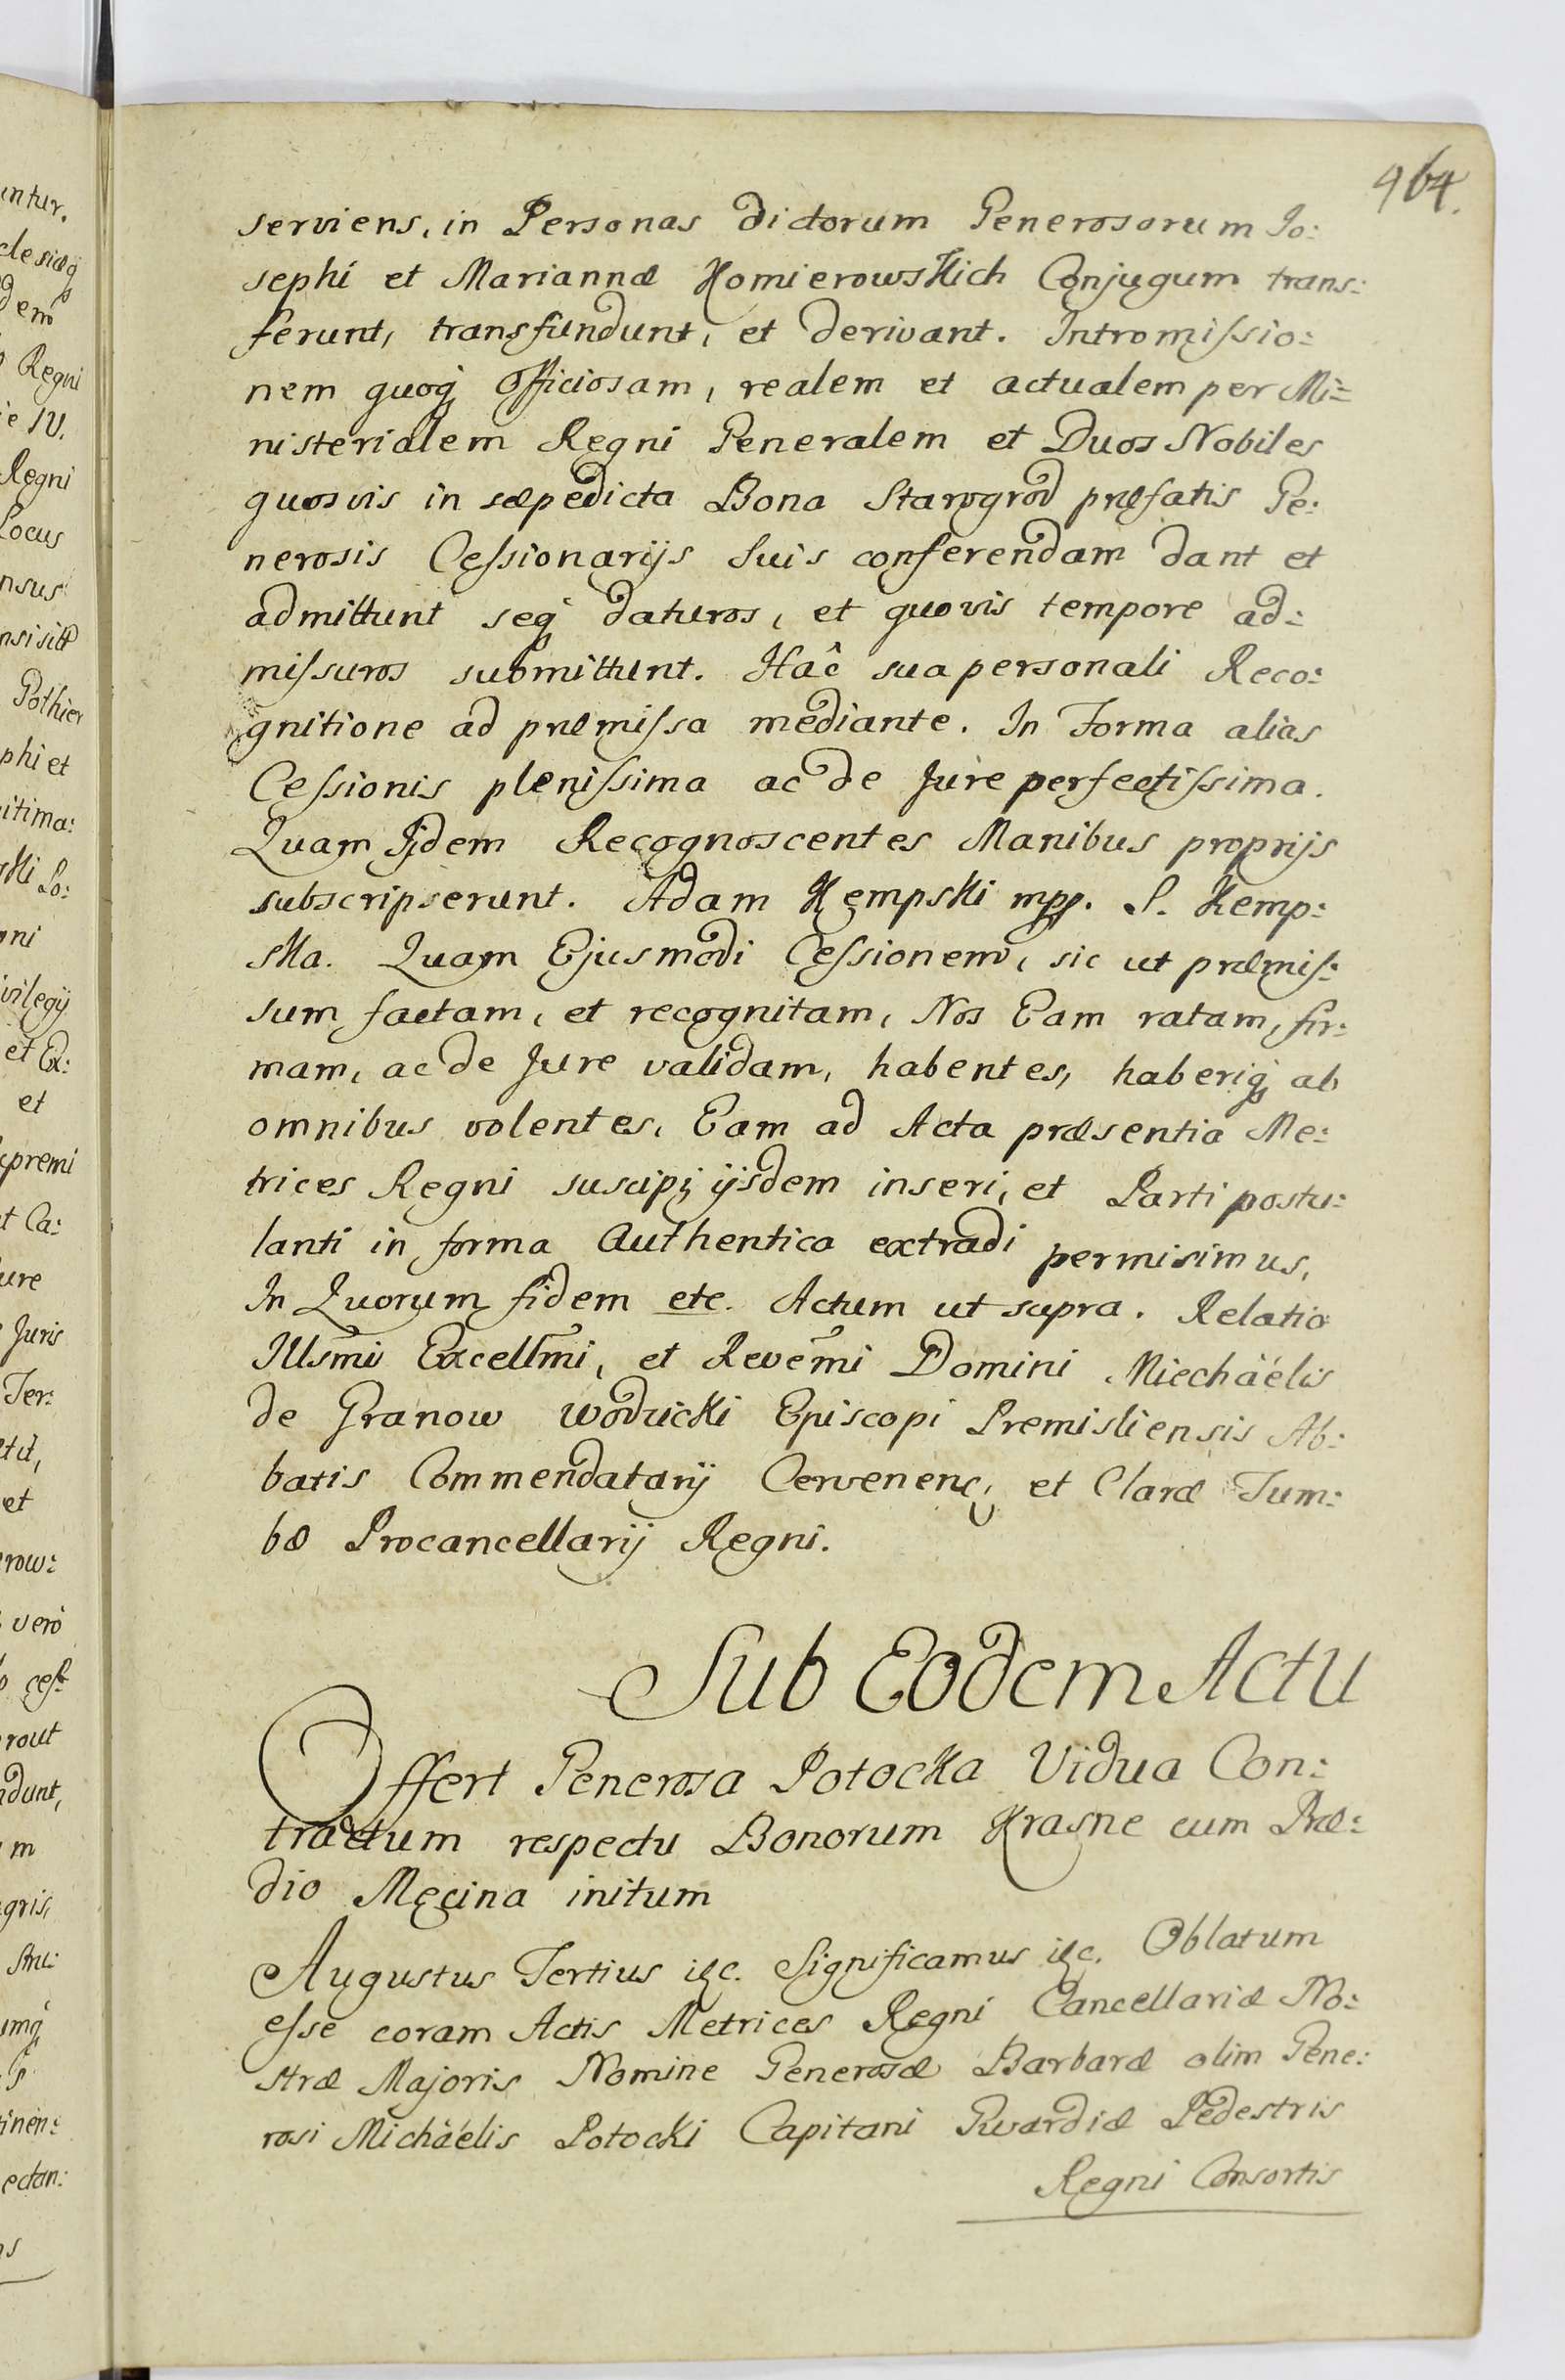 964.
serviens, in Personas dictorum Generosorum Jo:
sephi et Mariannæ Komierowskich Conjugum trans:
ferunt, transfundunt, et derivant. Intromissio:
nem quoq; Officiosam, realem et actualem per Mi:
nisterialem Regni Generalem et Duos Nobiles
quosvis in sæpedicta Bona Starogrod præfatis Ge:
nerosis Cessionarijs Suis conferendam dant et
admittunt seq; daturos, et quovis tempore ad:
missuros submittunt. Hâc sua personali Reco:
gnitione ad præmissa mediante. In Forma alias
Cessionis plenissima ac de Jure perfectissima.
Quam Ijdem Recognoscentes Manibus proprijs
subscripserunt. Adam Kempski mpp. S. Kemp:
ska. Quam Ejusmodi Cessionem, sic ut præmis:
sum factam, et recognitam, Nos Eam ratam, fir:
mam, ac de Jure validam, habentes, haberiq; ab
omnibus volentes, Eam ad Acta præsentia Me:
trices Regni suscipi, ijsdem inseri, et Parti postu:
lanti in forma Authentica extradi permisimus,
In Quorum fidem etc. Actum ut supra. Relatio
Illsmi Excellmi, et Revemi Domini Miechäelis
de Granow Wodzicki Episcopi Premisliensis Ab:
batis Commendatarij Cervenenc, et Claræ Tum:
bæ Procancellarij Regni.
Sub Eodem Actu
Offert Generosa Potocka Vidua Con:
tractum respectu Bonorum Krasne cum Præ:
dio Męcina initum
Augustus Tertius &c. Significamus &c. Oblatum
esse coram Actis Metrices Regni Cancellariæ No:
stræ Majoris Nomine Generosæ Barbaræ olim Gene:
rosi Michäelis Potocki Capitani Gwardiæ Pedestris
Regni Consortis